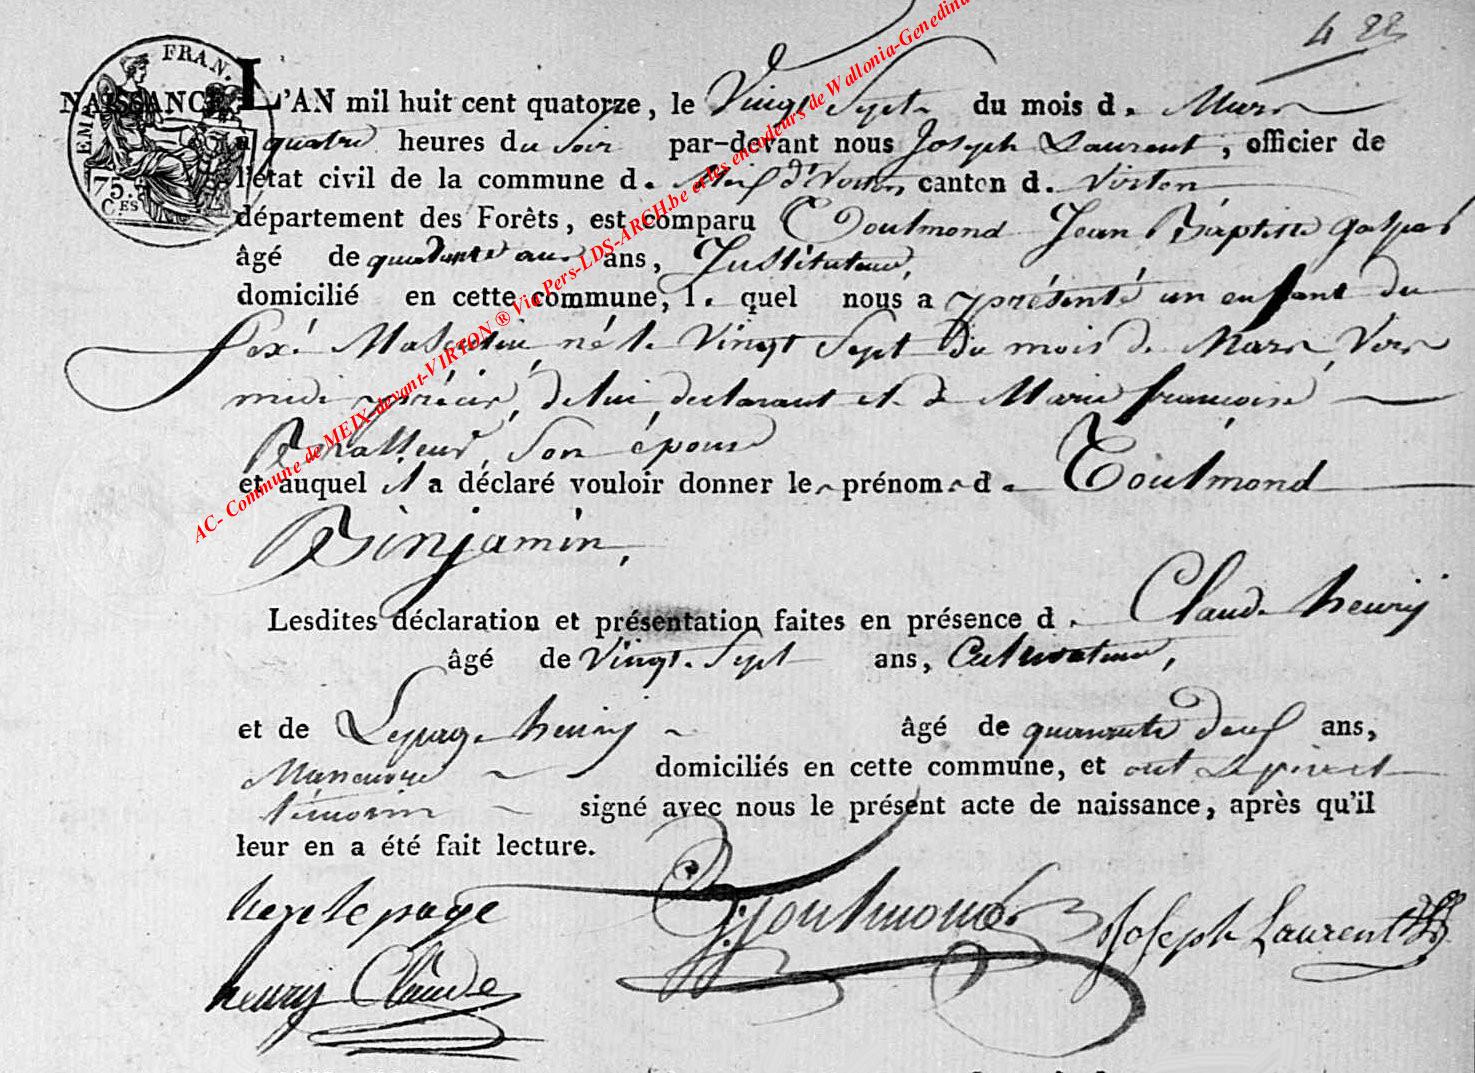 4 22
EMP. FRAN.
75.
C.ES
NAISSANCE.
L'AN mil huit cent quatorze, le Vingt Sept du mois d. Mars
a quatre heures du Soir par-devant nous Joseph Laurent, officier de
l'état civil de la commune d. Meix dt Virton, canton d. Virton
département des Forêts, est comparu Toulmond Jean Baptiste gaspar
âgé de quarante ans, Instituteur,
domicilié en cette commune, l. quel nous a présenté un enfant du
Sexe Masculin, né le Vingt Sept du mois de Mars, Vers
midi précis, de lui declarant et de Marie françoise
son épouse
et auquel il a déclaré vouloir donner les prénoms d. Toulmond
Binjamin,
Lesdites déclaration et présentation faites en présence d. Claude henrij
âgé de Vingt Sept ans, Cultivateur,
et de Lepage henrij âgé de quarante deux ans,
domiciliés en cette commune, et ont le pere et
témoin signé avec nous le présent acte de naissance, après qu'il
leur en a été fait lecture.
lepage
Toulmond
Joseph Laurent
henrij Claude
AC- Commune de MEIX-devant-VIRTON ® Via Pers-LDS-ARCH.be et les encodeurs de Wallonia-Genedina